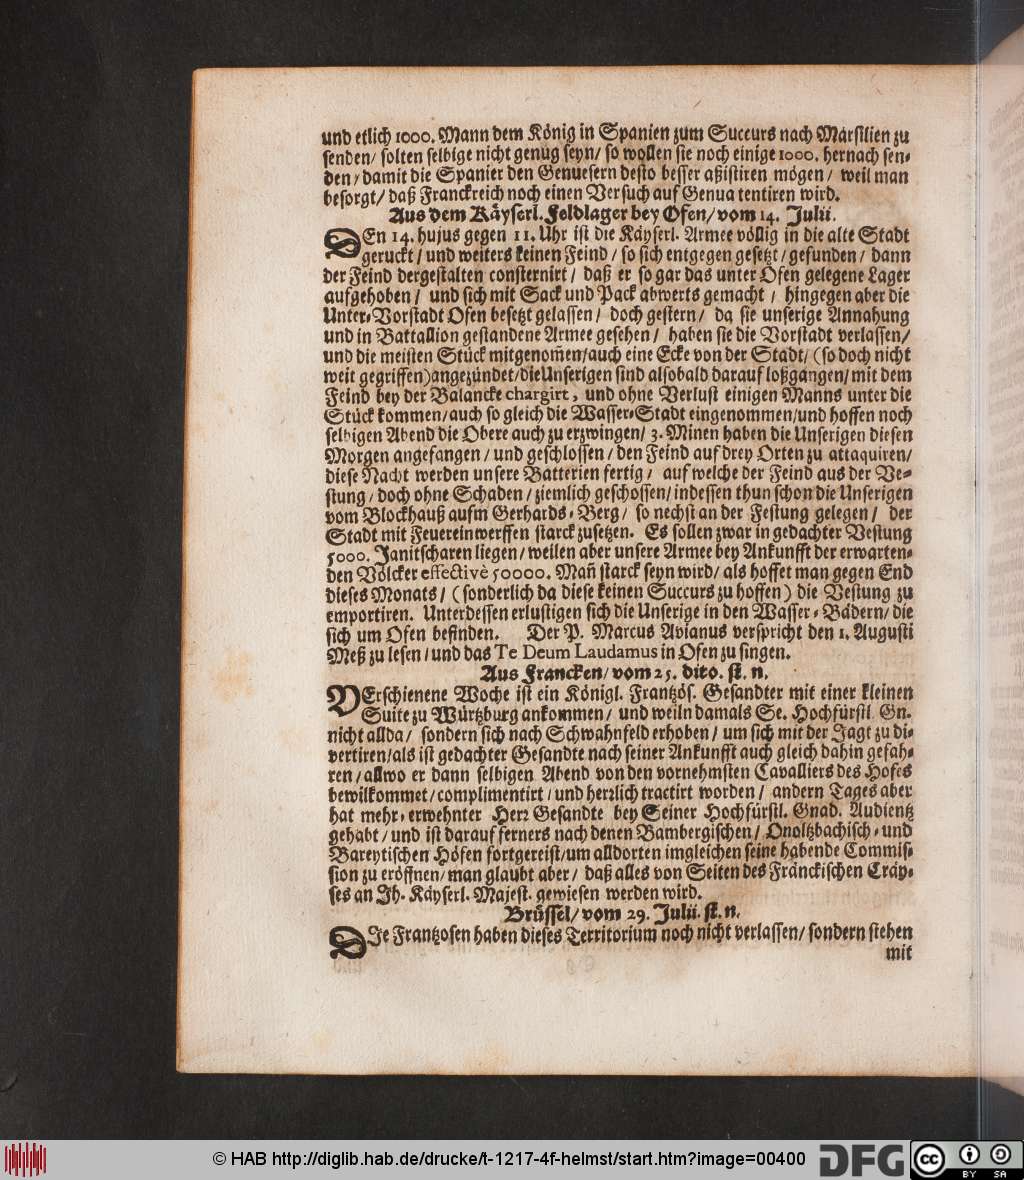 und etlich 1000. Mann dem König in Spanien zum Succurs nach Marsilien zu
senden/ solten selbige nicht genug seyn/ so wollen sie noch einige 1000. hernach sen-
den/ damit die Spanier den Genuesern desto besser aßistiren mögen/ weil man
besorgt/ daß Franckreich noch einen Versuch auf Genua tentiren wird.
Aus dem Käyserl. Feldlager bey Ofen/ vom 14. Julii.
DEn 14. hujus gegen 11. Uhr ist die Käyserl. Armee völlig in die alte Stadt
geruckt/ und weiters keinen Feind/ so sich entgegen gesetzt/ gefunden/ dann
der Feind dergestalten consternirt/ daß er so gar das unter Ofen gelegene Lager
aufgehoben/ und sich mit Sack und Pack abwerts gemacht/ hingegen aber die
Unter-Vorstadt Ofen besetzt gelassen/ doch gestern/ da sie unserige Annahung
und in Battallion gestandene Armee gesehen/ haben sie die Vorstadt verlassen/
und die meisten Stück mitgenom̃en/ auch eine Ecke von der Stadt/ (so doch nicht
weit gegriffen) angezündet/ die Unserigen sind alsobald darauf loßgangen/ mit dem
Feind bey der Balancke chargirt, und ohne Verlust einigen Manns unter die
Stück kommen/ auch so gleich die Wasser-Stadt eingenommen/ und hoffen noch
selbigen Abend die Obere auch zu erzwingen/ 3. Minen haben die Unserigen diesen
Morgen angefangen/ und geschlossen/ den Feind auf drey Orten zu attaquiren/
diese Nacht werden unsere Batterien fertig/ auf welche der Feind aus der Ve-
stung/ doch ohne Schaden/ ziemlich geschossen/ indessen thun schon die Unserigen
vom Blockhauß aufm Gerhards-Berg/ so nechst an der Festung gelegen/ der
Stadt mit Feuereinwerffen starck zusetzen. Es sollen zwar in gedachter Vestung
5000. Janitscharen liegen/ weilen aber unsere Armee bey Ankunfft der erwarten-
den Völcker effectivè 50000. Mañ starck seyn wird/ als hoffet man gegen End
dieses Monats/ (sonderlich da diese keinen Succurs zu hoffen) die Vestung zu
emportiren. Unterdessen erlustigen sich die Unserige in den Wasser-Bädern/ die
sich um Ofen befinden. Der P. Marcus Avianus verspricht den 1. Augusti
Meß zu lesen/ und das Te Deum Laudamus in Ofen zu singen.
Aus Francken/ vom 25. dito. st. n.
VErschienene Woche ist ein Königl. Frantzös. Gesandter mit einer kleinen
Suite zu Würtzburg ankommen/ und weiln damals Se. Hochfürstl. Gn.
nicht allda/ sondern sich nach Schwahnfeld erhoben/ um sich mit der Jagt zu di-
vertiren/ als ist gedachter Gesandte nach seiner Ankunfft auch gleich dahin gefah-
ren/ allwo er dann selbigen Abend von den vornehmsten Cavalliers des Hofes
bewillkommet/ complimentirt/ und herꝛlich tractirt worden/ andern Tages aber
hat mehr-erwehnter Herꝛ Gesandte bey Seiner Hochfürstl. Gnad. Audientz
gehabt/ und ist darauf ferners nach denen Bambergischen/ Onoltzbachisch- und
Bareytischen Höfen fortgereist/ um alldorten imgleichen seine habende Commis-
sion zu eröffnen/ man glaubt aber/ daß alles von Seiten des Fränckischen Cräy-
ses an Ih. Käyserl. Majest. gewiesen werden wird.
Brüssel/ vom 29. Julii. st. n.
DIe Frantzosen haben dieses Territorium noch nicht verlassen/ sondern stehen
mit
© HAB http://diglib.hab.de/drucke/t-1217-4f-helmst/start.htm?image=00400
DFG
cc
BY SA